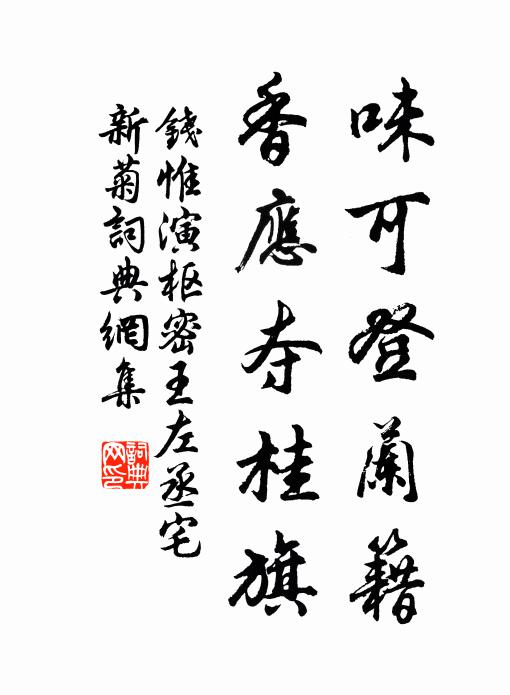 味可登蘭籍
香應夺桂旗
錢惟演枢密王左丞宅
新菊詞典網集
詞典网印